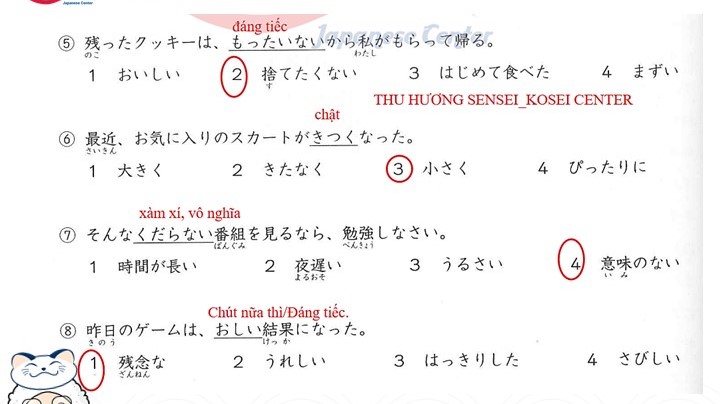 Japanese Center
Japanese Center
đáng tiếc
⑤ 残ったクッキーは、もったいないから私がもらって帰る。
のこ わたし
1 おいしい 2 捨てたくない 3 はじめて食べた 4 まずい
す
THU HƯƠNG SENSEI_KOSEI CENTER
chật
⑥ 最近、お気に入りのスカートがきつくなった。
さいきん
1 大きく 2 きたなく 3 小さく 4 ぴったりに
xàm xí, vô nghĩa
⑦ そんなくだらない番組を見るなら、勉強しなさい。
ばんぐみ べんきょう
1 時間が長い 2 夜遅い 3 うるさい 4 意味のない
よるおそ いみ
Chút nữa thì/Đáng tiếc.
⑧ 昨日のゲームは、おしい結果になった。
きのう けっか
1 残念な 2 うれしい 3 はっきりした 4 さびしい
ざんねん